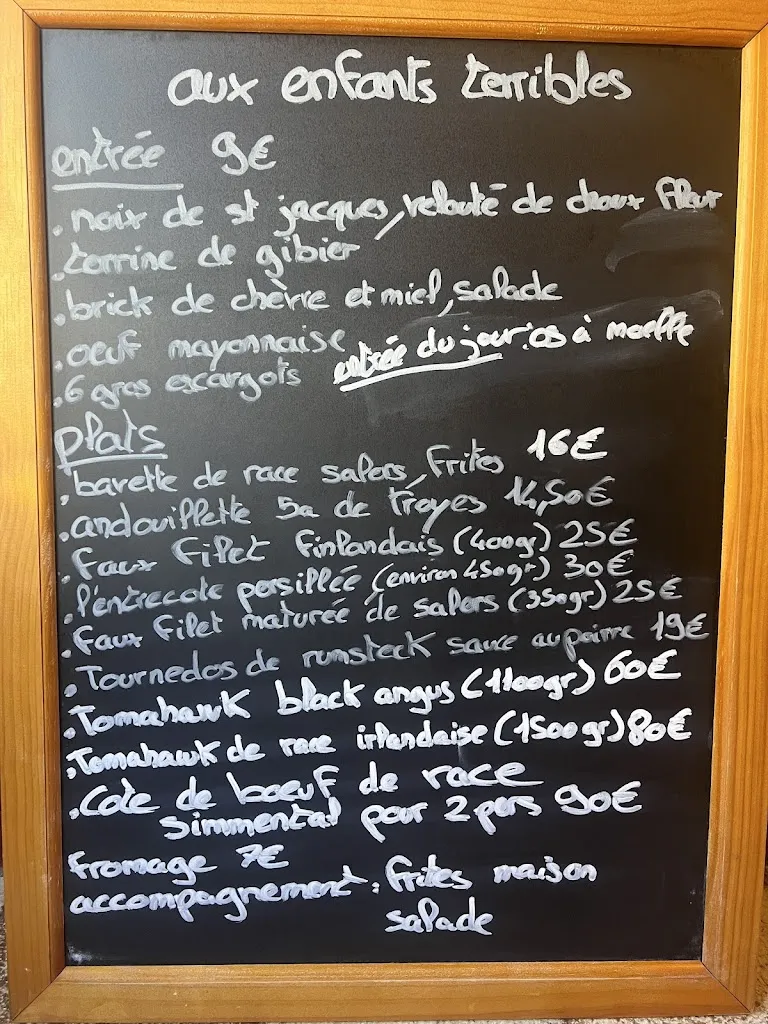 aux enfants terribles
entrée 9€
. noix de st jacques, velouté de choux fleur
. terrine de gibier
. brick de chèvre et miel, salade
. oeuf mayonnaise
entrée du jour: os à moelle
. 6 gros escargots
plats
. bavette de race salers, frites 16€
. andouillette 5a de troyes 14,50€
. faux filet finlandais (400gr) 25€
. l'entrecote persillée (environ 450gr) 30€
. faux filet maturée de salers (350gr) 25€
. Tournedos de rumsteck sauce au poivre 19€
. Tomahawk black angus (1100gr) 60€
. Tomahawk de race irlandaise (1500gr) 80€
. Cote de boeuf de race
simmental pour 2 pers 90€
fromage 7€
accompagnement: frites maison
salade